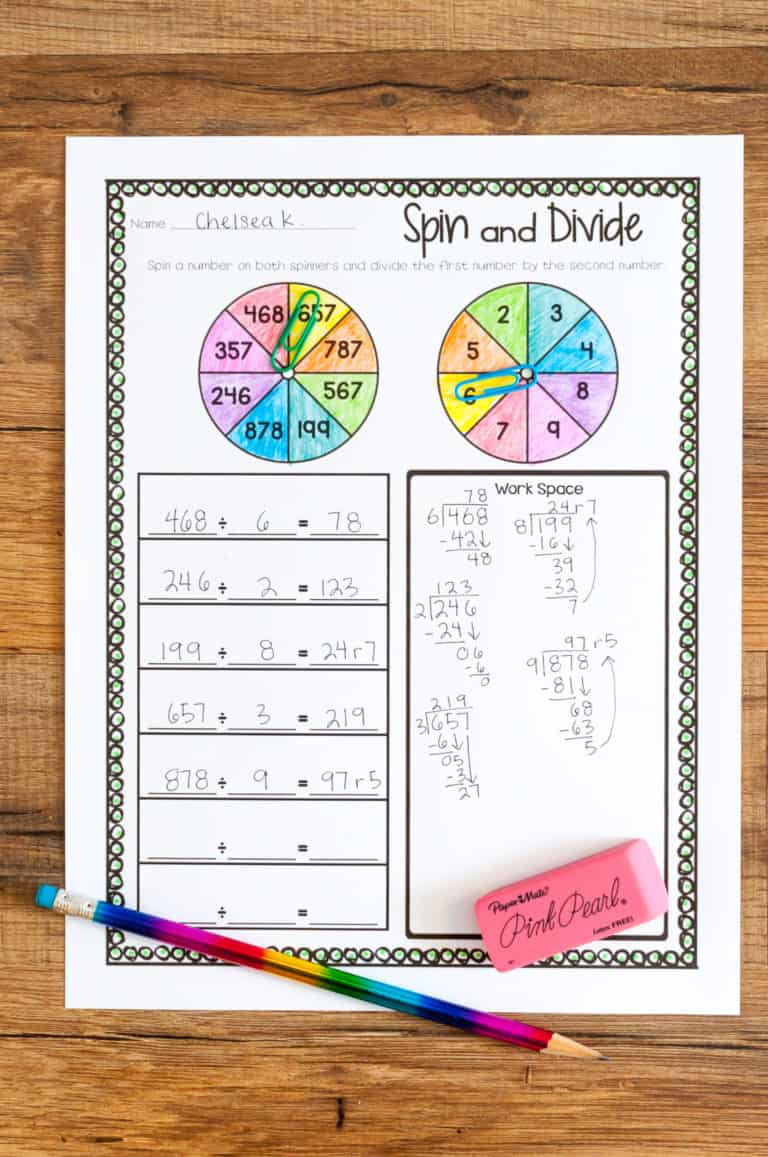 Name Chelsea K.
Spin and Divide
Spin a number on both spinners and divide the first number by the second number.
468 657
357 787
246 567
878 199
2 3
5 4
6 8
7 9
468 ÷ 6 = 78
246 ÷ 2 = 123
199 ÷ 8 = 24r7
657 ÷ 3 = 219
878 ÷ 9 = 97r5
÷ =
÷ =
Work Space
78
6)468
-42↓
48
123
2)246
-24↓
06
-6
0
219
3)657
-6↓
05
-3↓
27
24r7
8)199
-16↓
39
-32
7
97r5
9)878
-81↓
68
-63
5
Paper Mate®
Pink Pearl®
Latex FREE!